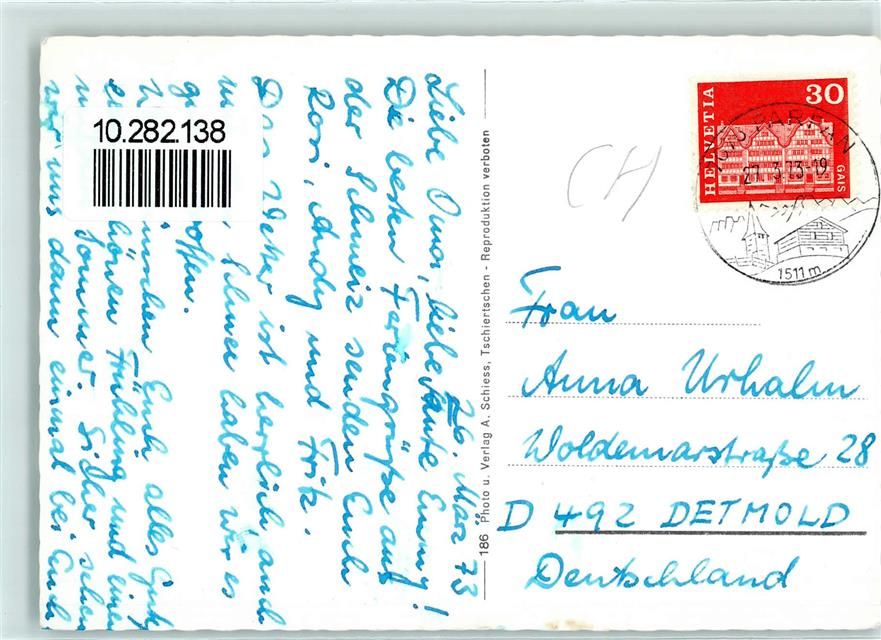 10.282.138
26. März 73
Liebe Oma, liebe Tante Emmy!
Die besten Feriengrüße aus
der Schweiz senden Euch
Rosi, Andy und Fritz.
Das Wetter ist herrlich, auch
Schnee haben wir es
offen.
wünschen Euch alles Gute
schönen Frühling und einen
Sommer. Sicher sehen
wir uns dann einmal bei Euch
186 Photo u. Verlag A. Schiess, Tschiertschen - Reproduktion verboten
CH
HELVETIA
30
GAIS
PARPAN
27. 3. 73-19
1511 m
Frau
Anna Urhahn
Woldemarstraße 28
D 492 DETMOLD
Deutschland